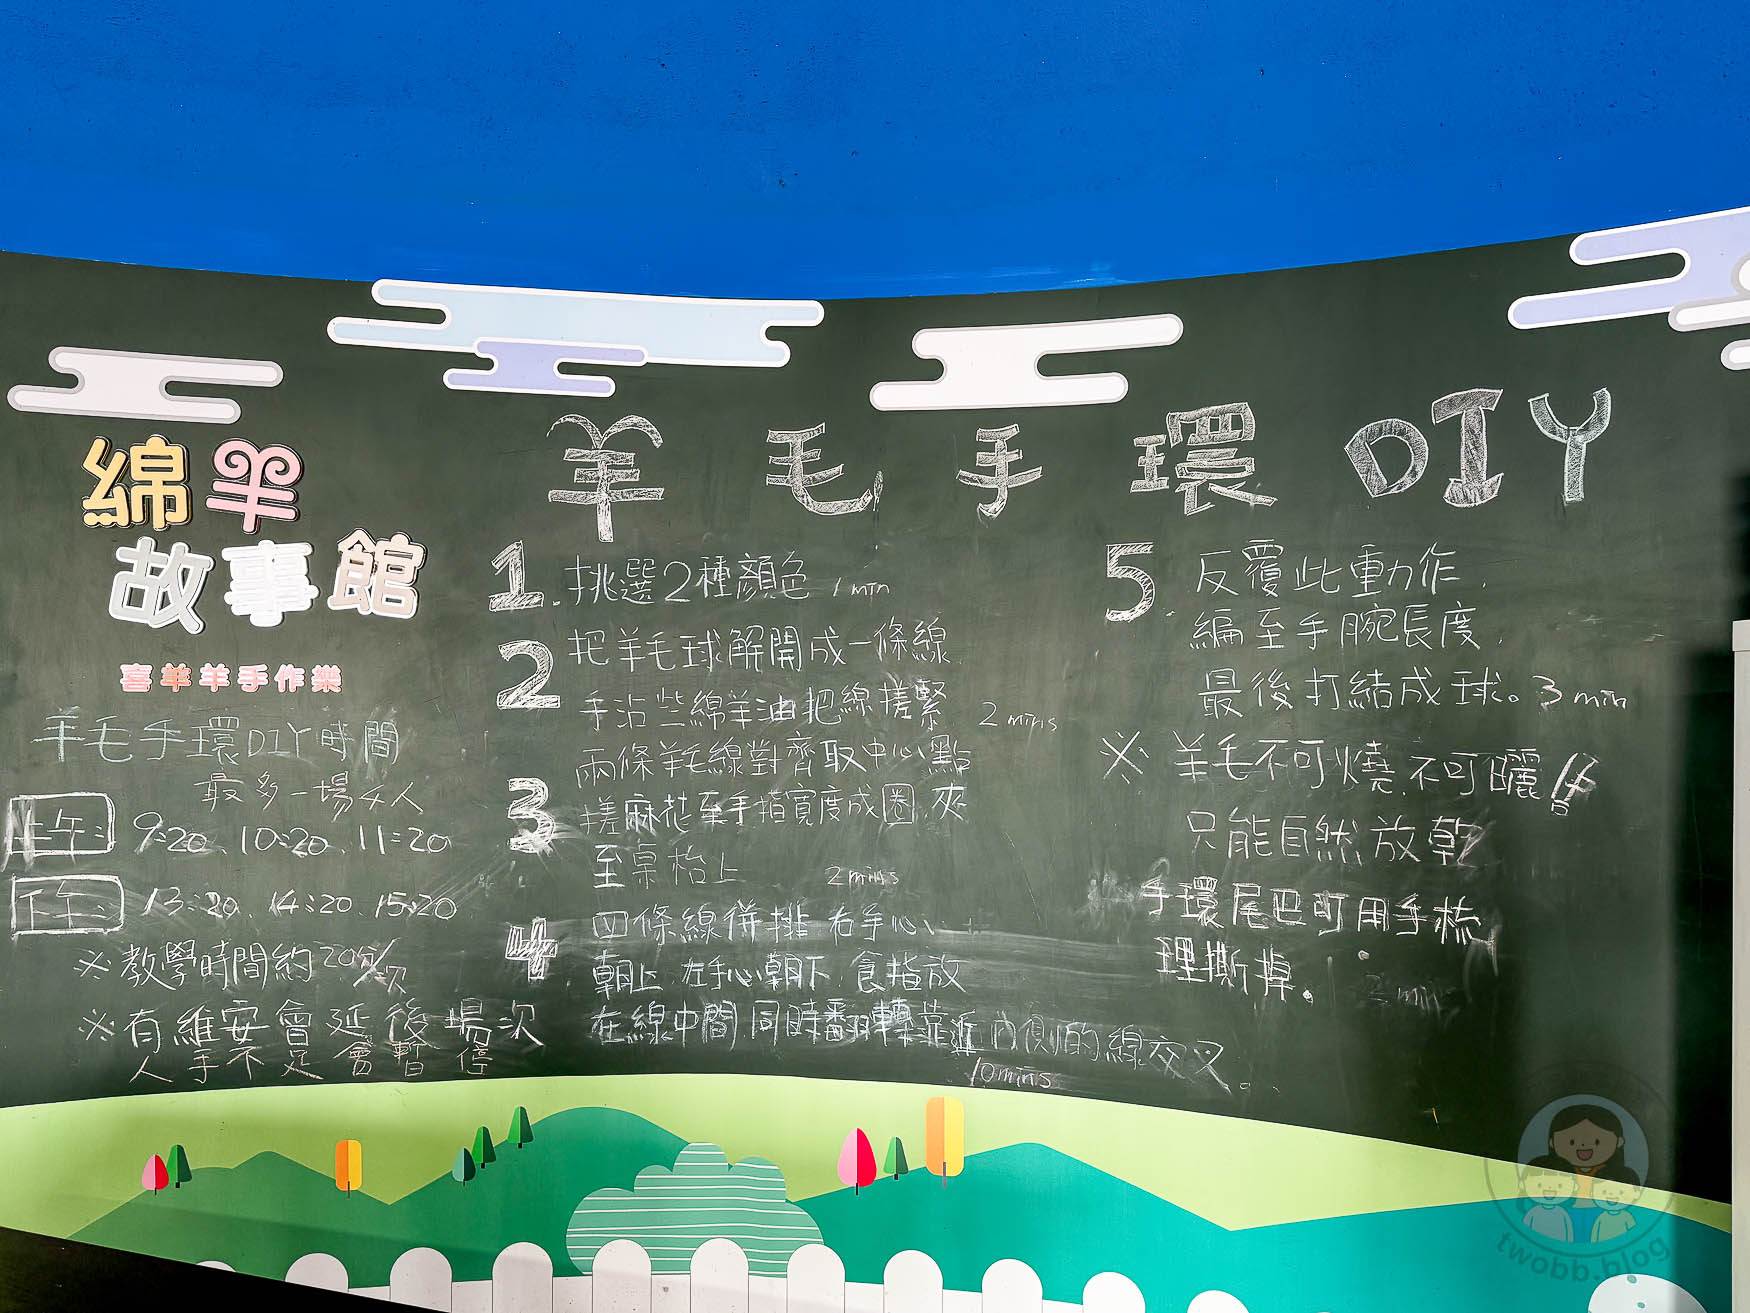 綿羊
故事館
喜羊羊手作樂
羊毛手環DIY時間
最多一場4人
上午: 9:20、10:20、11:20
下午: 13:20、14:20、15:20
※教學時間約20分/次
※有維安會延後場次
人手不足會暫停
羊毛手環DIY
1. 挑選2種顏色 1min
2 把羊毛球解開成一條線
手沾些綿羊油把線搓緊 2mins
3 兩條羊毛線對齊取中心點
搓麻花至手指寬度成圈,夾
至桌枱上 2mins
4 四條線併排 右手心
朝上 左手心朝下,食指放
在線中間 同時翻轉靠近內側的線交叉。
10mins
5 反覆此動作,
編至手腕長度,
最後打結成球。3min
※羊毛不可燒,不可曬!!
只能自然放乾
手環尾巴可用手梳
理撕掉。 2min
twobb.blog